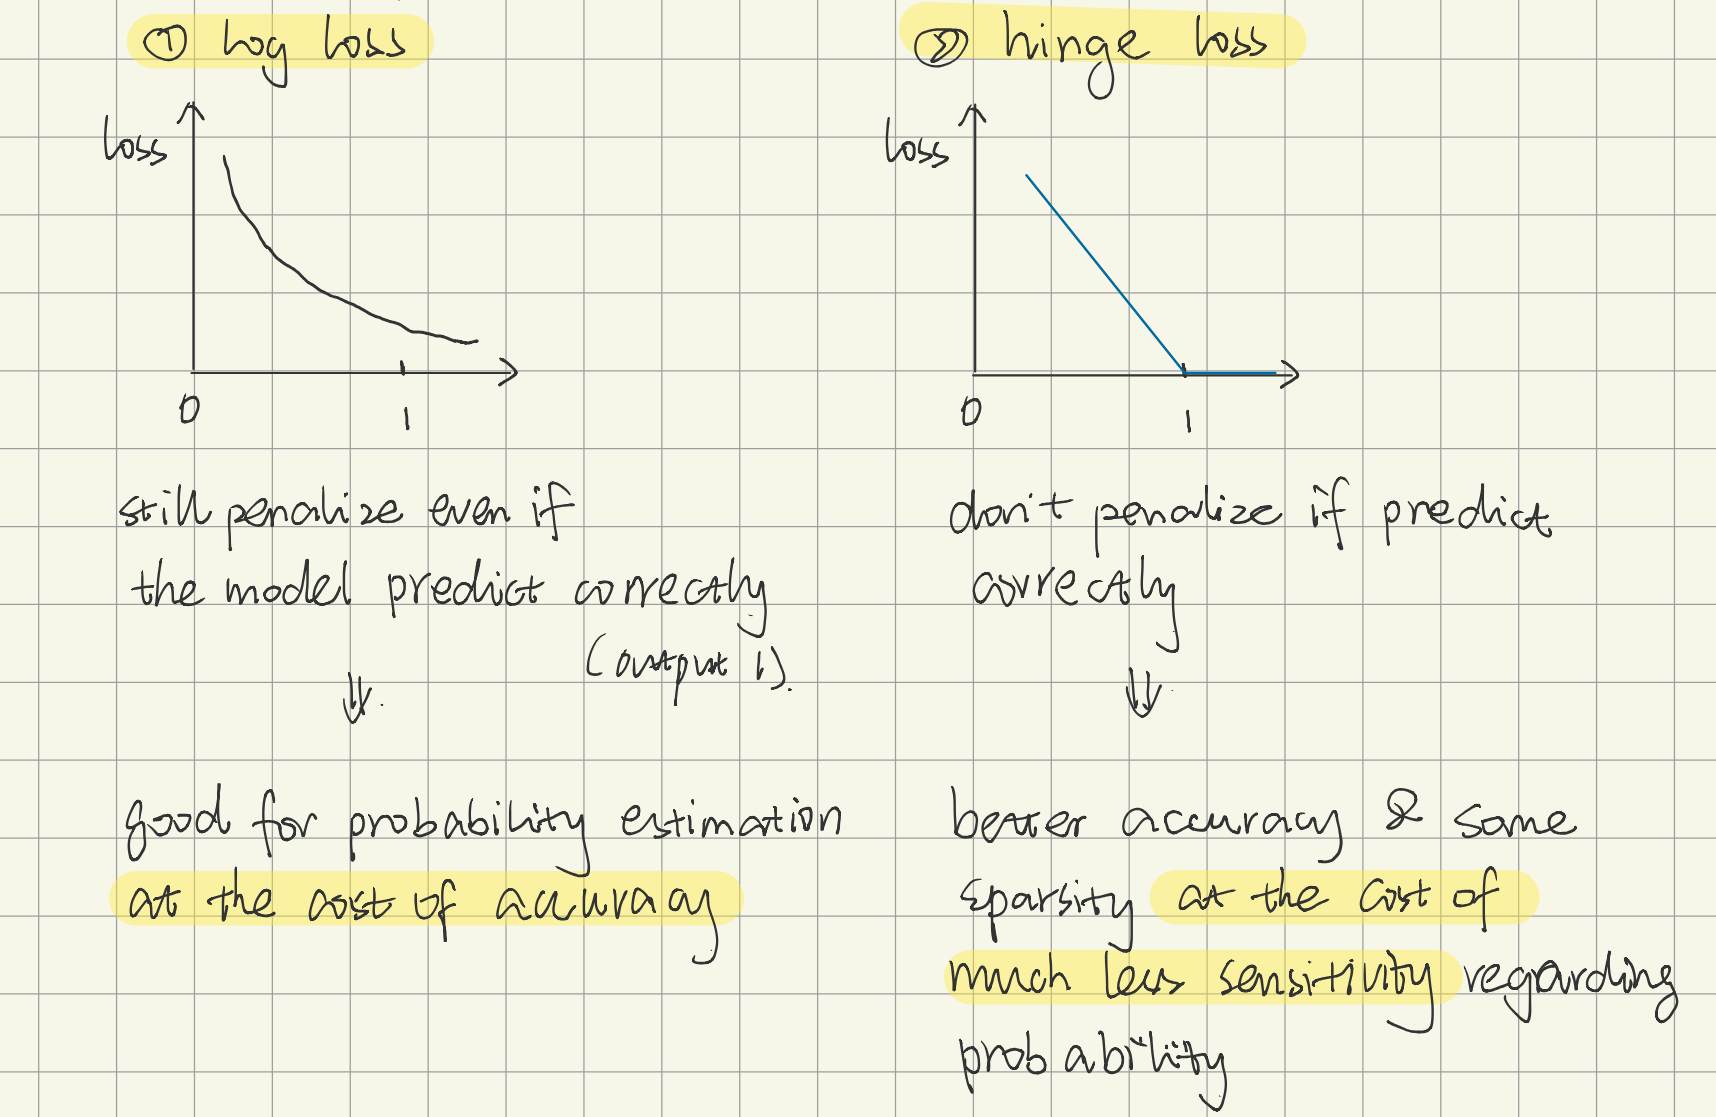 ① log loss
loss
0
1
still penalize even if
the model predict correctly
(output 1).
⇓
good for probability estimation
at the cost of accuracy
② hinge loss
loss
0
1
don't penalize if predict
correctly
⇓
better accuracy & some
sparsity at the cost of
much less sensitivity regarding
probability